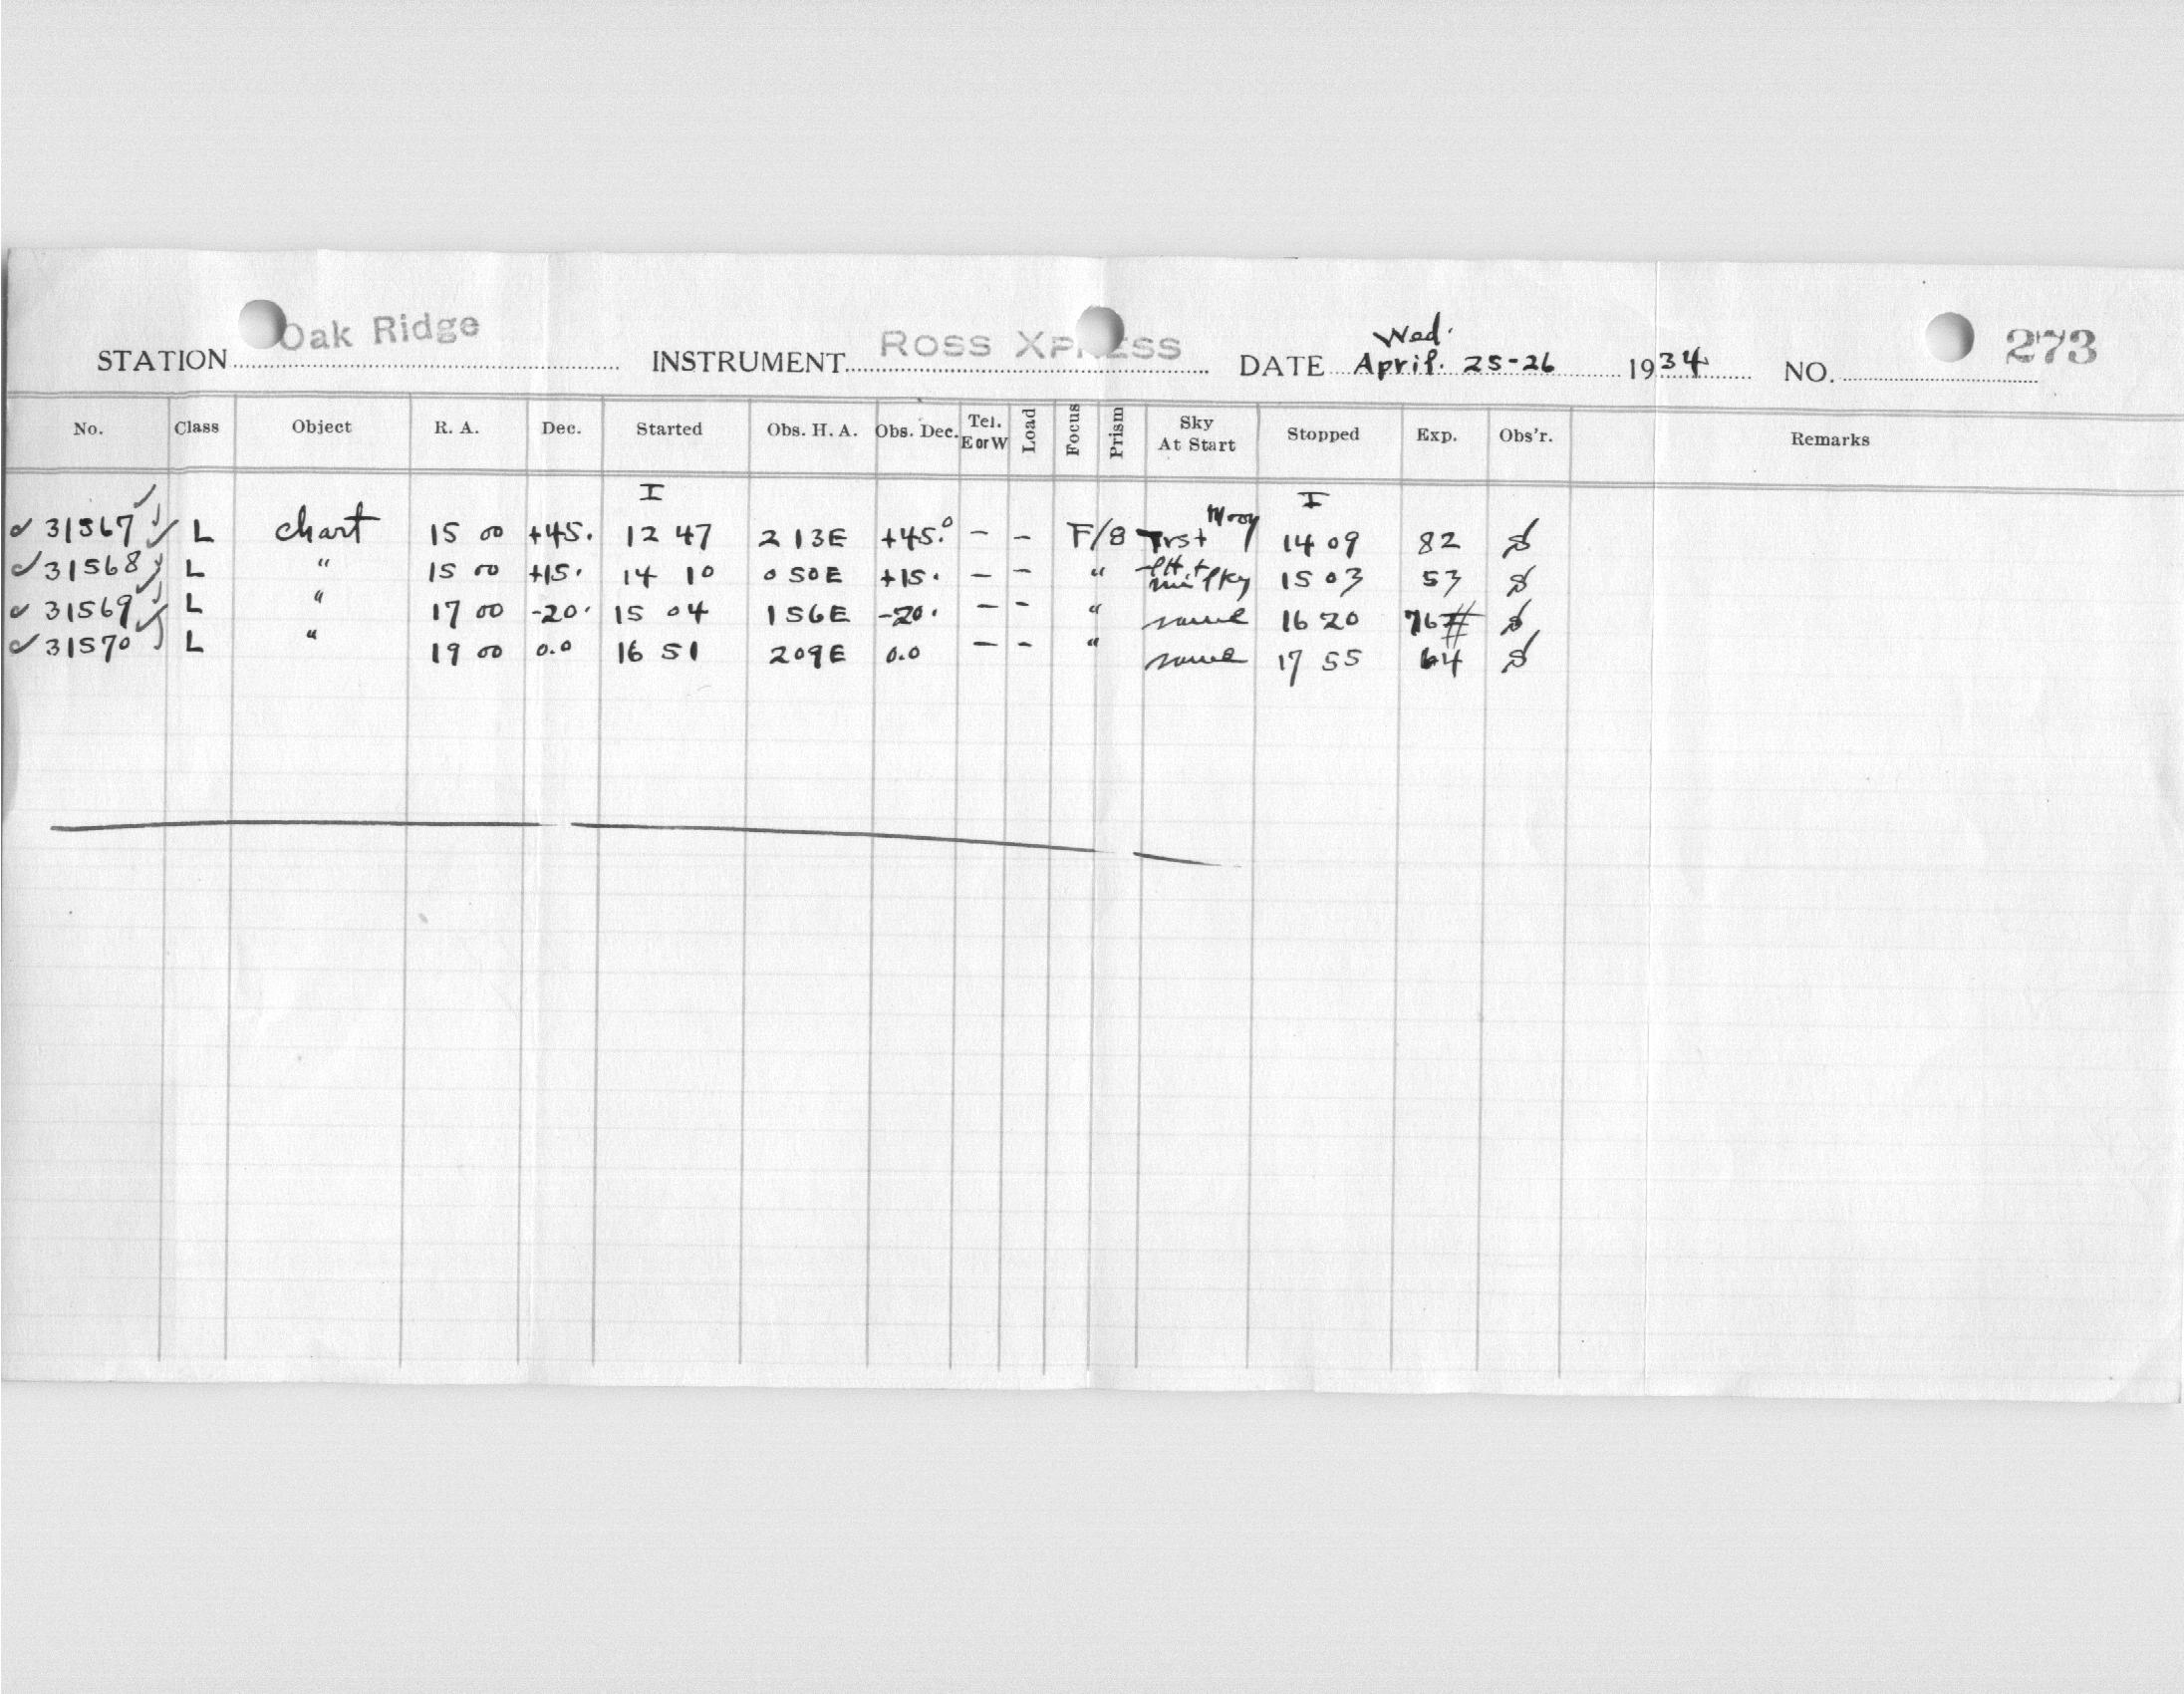 Oak Ridge Ross XPRESS Wed. 273
STATION INSTRUMENT DATE April. 25-26 1934 NO.
No. Class Object R. A. Dec. Started Obs. H. A. Obs. Dec. Tel. E or W Load Focus Prism Sky At Start Stopped Exp. Obs'r. Remarks
I I
31567 L chart 15 00 +45. 12 47 2 13E +45.° - - F/8 Moon 14 09 82
31568 L " 15 00 +15. 14 10 0 50E +15. - - " milky 15 03 53
31569 L " 17 00 -20. 15 04 1 56E -20. - - " same 16 20 76
31570 L " 19 00 0.0 16 51 209E 0.0 - - " same 17 55 64